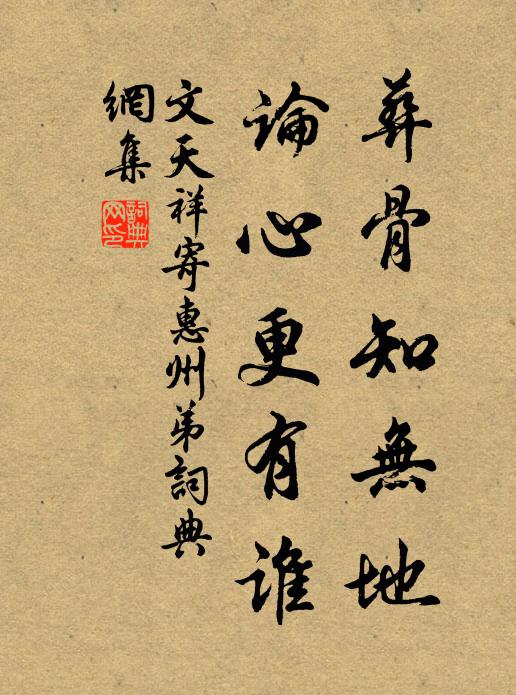 葬骨知無地
論心更有誰
文天祥寄惠州弟詞典
網集
詞典
网印